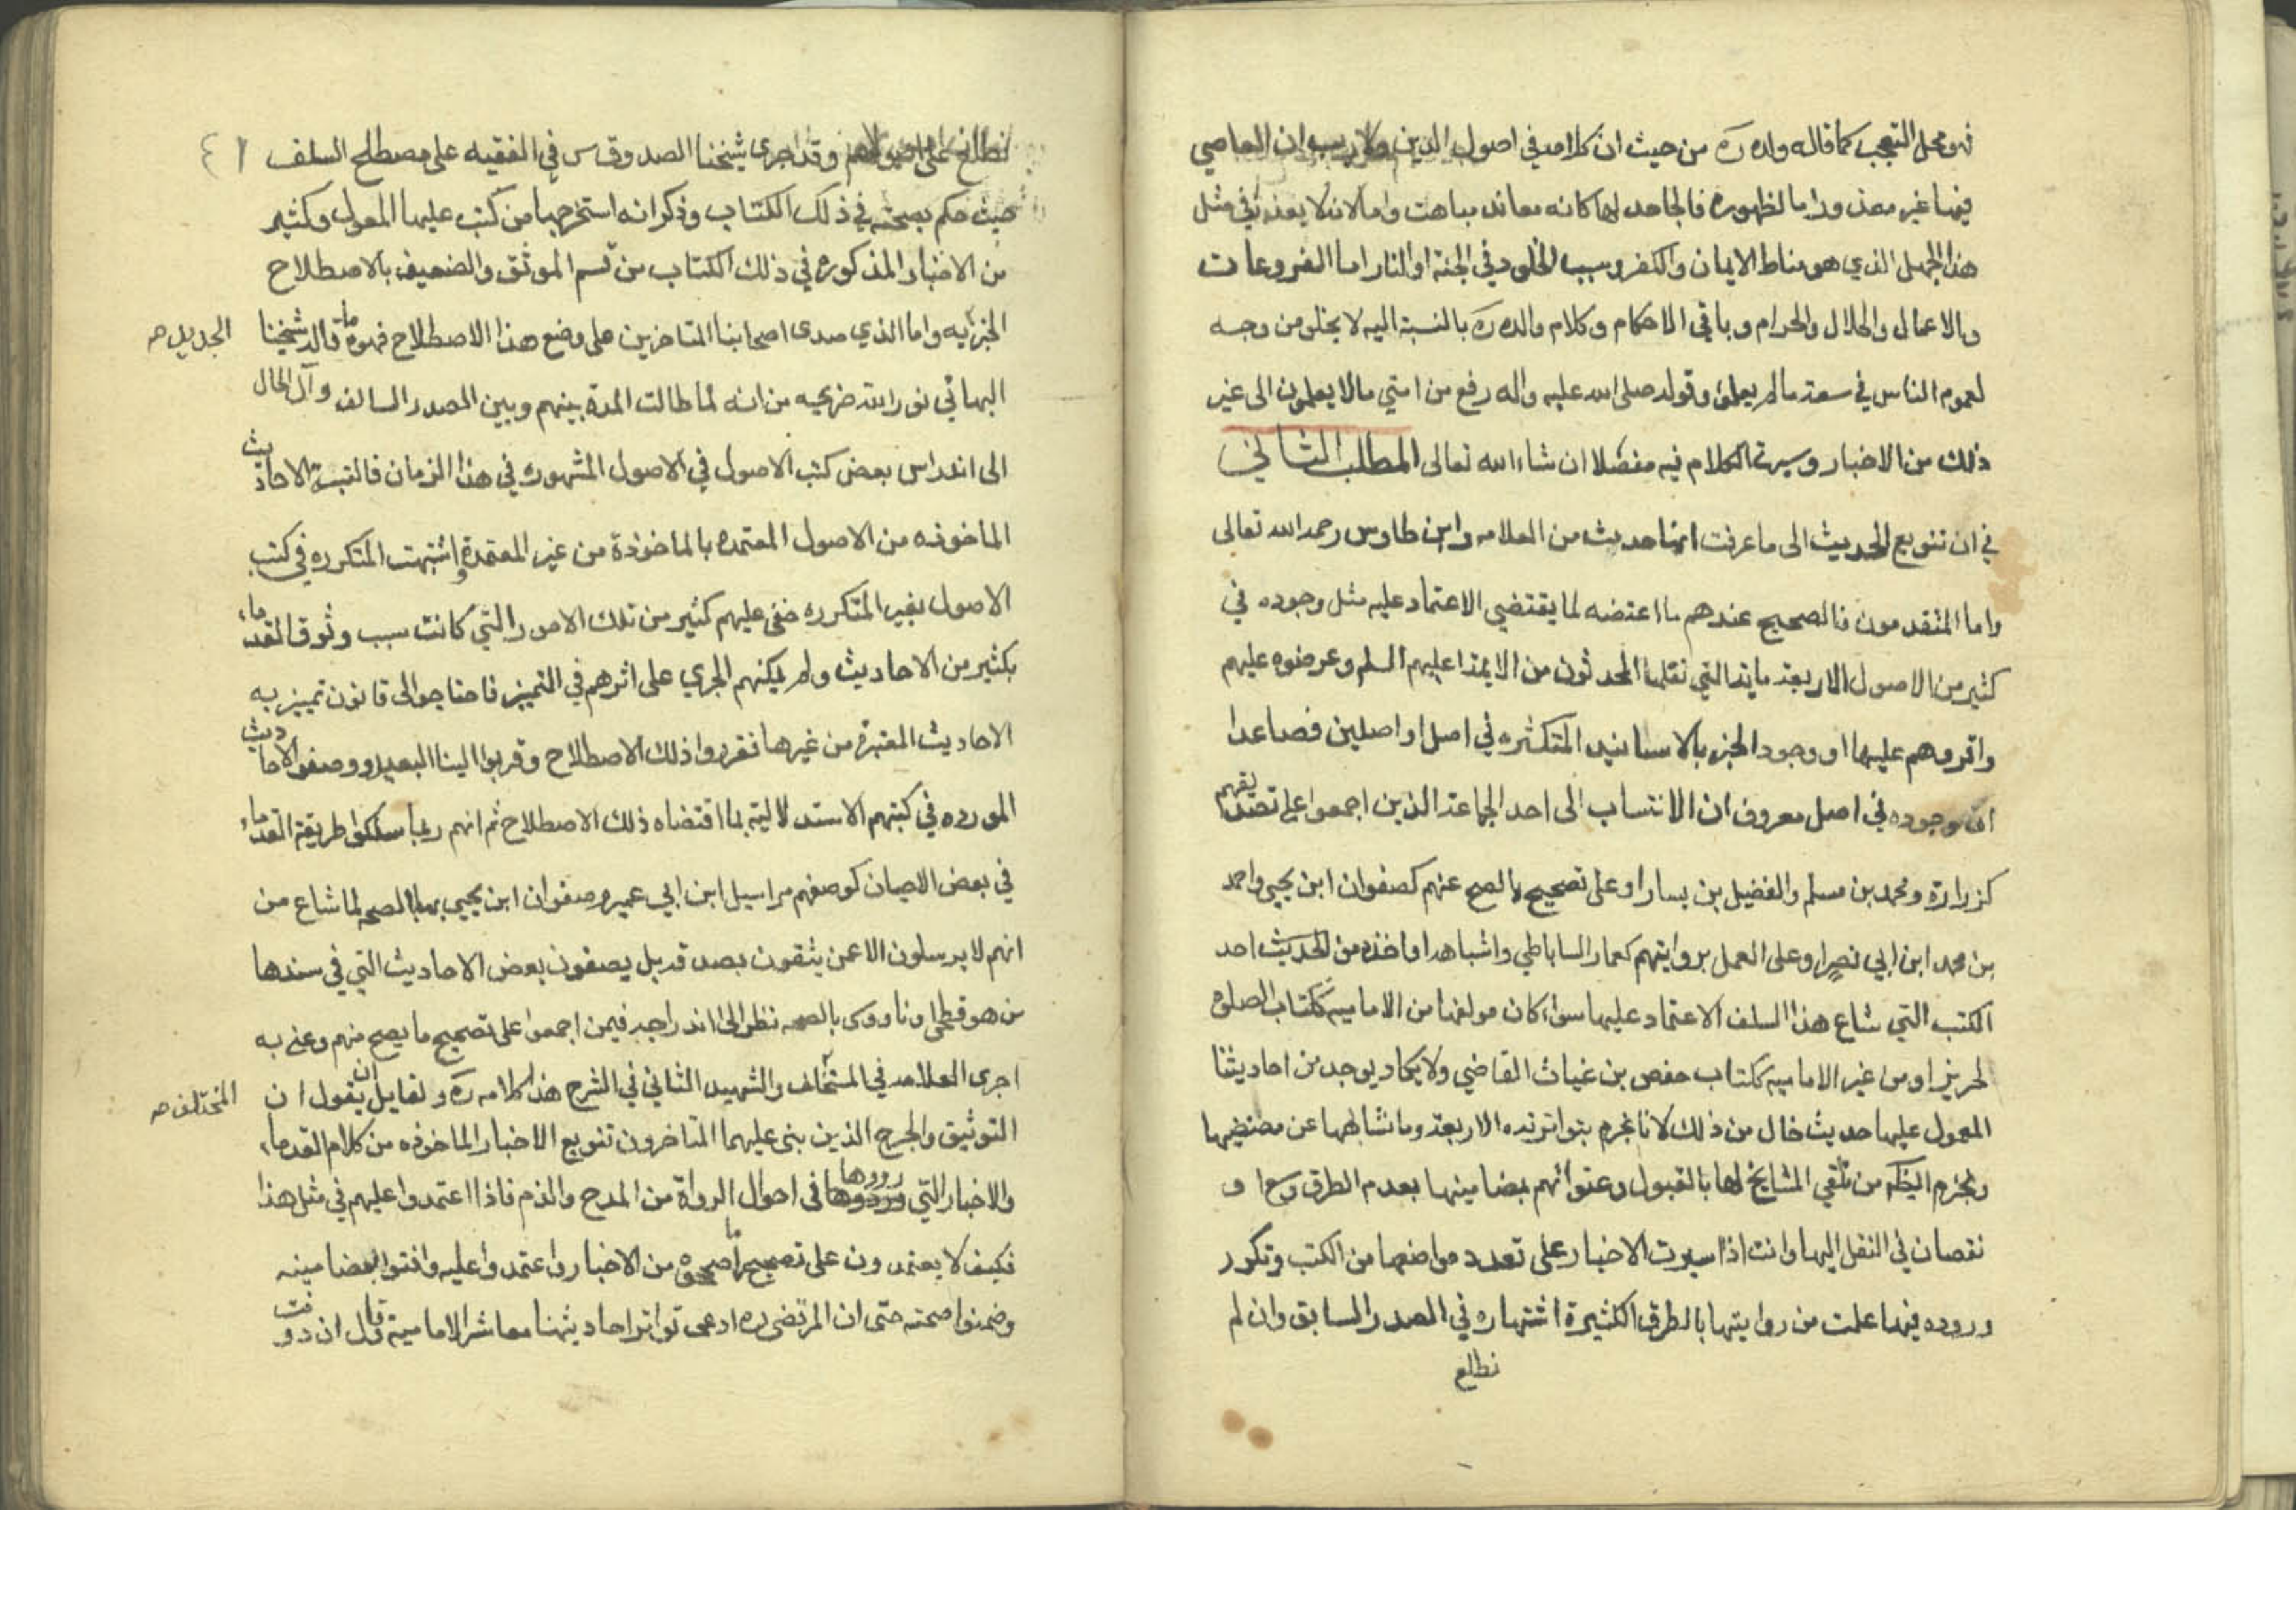 فهو محل التعجب كما قاله والده ره من حيث ان كلامه في اصول الدين ولا ريب ان العاصي
فيها غير معذور اما لظهوره فالجاحد لها كانه معاند مباهت واما لانه لا يعذر في مثل
هذا الجهل الذي هو مناط الايمان والكفر وسبب الخلود في الجنة او النار اما الفروعات
والاعمال والحلال والحرام وباقي الاحكام وكلام والده ره بالنسبة اليه لا يخلو من وجه
لعموم الناس في سعة ما لم يعلموا وقوله صلى الله عليه واله رفع من امتي ما لا يعلمون الى غير
ذلك من الاخبار وسيرة الكلام فيه مفصلا ان شاء الله تعالى المطلب الثاني
في ان تنويع الحديث الى ما عرفت انما حديث من العلامه وابن طاوس رحمه الله تعالى
واما المتقدمون فالصحيح عندهم ما اعتضد لما يقتضي الاعتماد عليه مثل وجوده في
كثير من الاصول الاربعة ماية التي نقلها المحدثون من الايمة عليهم السلم وعرضوه عليهم
واقروهم عليها او وجود الخبر بالاسانيد المتكثره في اصل او اصلين فصاعدا
او وجوده في اصل معروف ان الانتساب الى احد الجماعة الذين اجمعوا على تصديقهم
كزرارة ومحمد بن مسلم والفضيل بن يسار او على تصحيح ما صح عنهم كصفوان ابن يحيى واحمد
بن محمد ابن ابي نصر او على العمل بروايتهم كعمار الساباطي واشباهه او اخذه من الحديث احد
الكتب التي شاع هذا السلف الاعتماد عليها سواء كان مولفها من الاماميه ككتاب الصلوه
لحريز او من غير الاماميه ككتاب حفص بن غياث القاضي ولا يكاد يوجد من احاديثنا
المعول عليها حديث خال من ذلك لانا نجزم بتواتر هذه الاربعة وما شابهها عن مصنفيها
ونجزم من تلقي المشايخ لها بالقبول بمضامينها بعدم الطرق و
نقصان في النقل اليها وانت اذا سبرت الاخبار على تعدد مواضعها من الكتب وتكرر
وروده فيها علمت من روايتها بالطرق الكثيرة اشتهاره في الصدر السابق وان لم
نطلع
نطلع على اصولهم وقد اجرى شيخنا الصدوق س في الفقيه على مصطلح السلف
٤١
حيث حكم بصحته في ذلك الكتاب وذكر انه استخرجها من كتب عليها المعول وكثير
من الاخبار المذكوره في ذلك الكتاب من قسم الموثق والضعيف بالاصطلاح
واما الذي حدى اصحابنا المتاخرين على وضع هذا الاصطلاح فهو ما قاله شيخنا
الجديد صح
البهائي نور الله ضريحه من انه لما طالت المدة بينهم وبين الصدر السالف وآل الحال
الى اندراس بعض كتب الاصول في الاصول المشهوره في هذا الزمان فالتبست الاحاديث
الماخوذه من الاصول المعتمده بالماخوذة من غير المعتمدة واشتبهت المتكرره في كتب
الاصول بغير المتكرره خفي عليهم كثير من تلك الامور التي كانت سبب وثوق القدماء
بكثير من الاحاديث ولم يمكنهم الجري على اثرهم في التميز فاحتاجوا الى قانون تميز به
الاحاديث المعتبرة من غيرها فقرروا ذلك الاصطلاح وقربوا الينا البعيد ووصفوا الاحاديث
المورده في كتبهم الاستدلالية بما اقتضاه ذلك الاصطلاح ثم انهم ربما سلكوا طريقة القدماء
في بعض الاحيان كوصفهم مراسيل ابن ابي عمير وصفوان ابن يحيى بالصحه لما شاع من
انهم لا يرسلون الا عمن يثقون بصدقه بل يصفون بعض الاحاديث التي في سندها
من هو فطحي او ناووى بالصحه نظر الى اندراجه فيمن اجمعوا على تصحيح ما يصح منهم وعلى به
اجرى العلامه في المختلف والشهيد الثاني في الشرح هذا كلامه ره ولقايل ان يقول ان
المختلف صح
التوثيق والجرح الذين بنى عليهما المتاخرون تنويع الاخبار الماخوذه من كلام القدماء
والاخبار التي رووها في احوال الرواة من المدح والذم فاذا اعتمدوا عليهم في مثل هذا
فكيف لا يعتمدون على تصحيح ما صححوه من الاخبار واعتمدوا عليه وافتوا بمضامينه
وضمنوا صحته حتى ان المرتضى ره ادعى تواتر احاديثنا معاشر الامامية قال ان